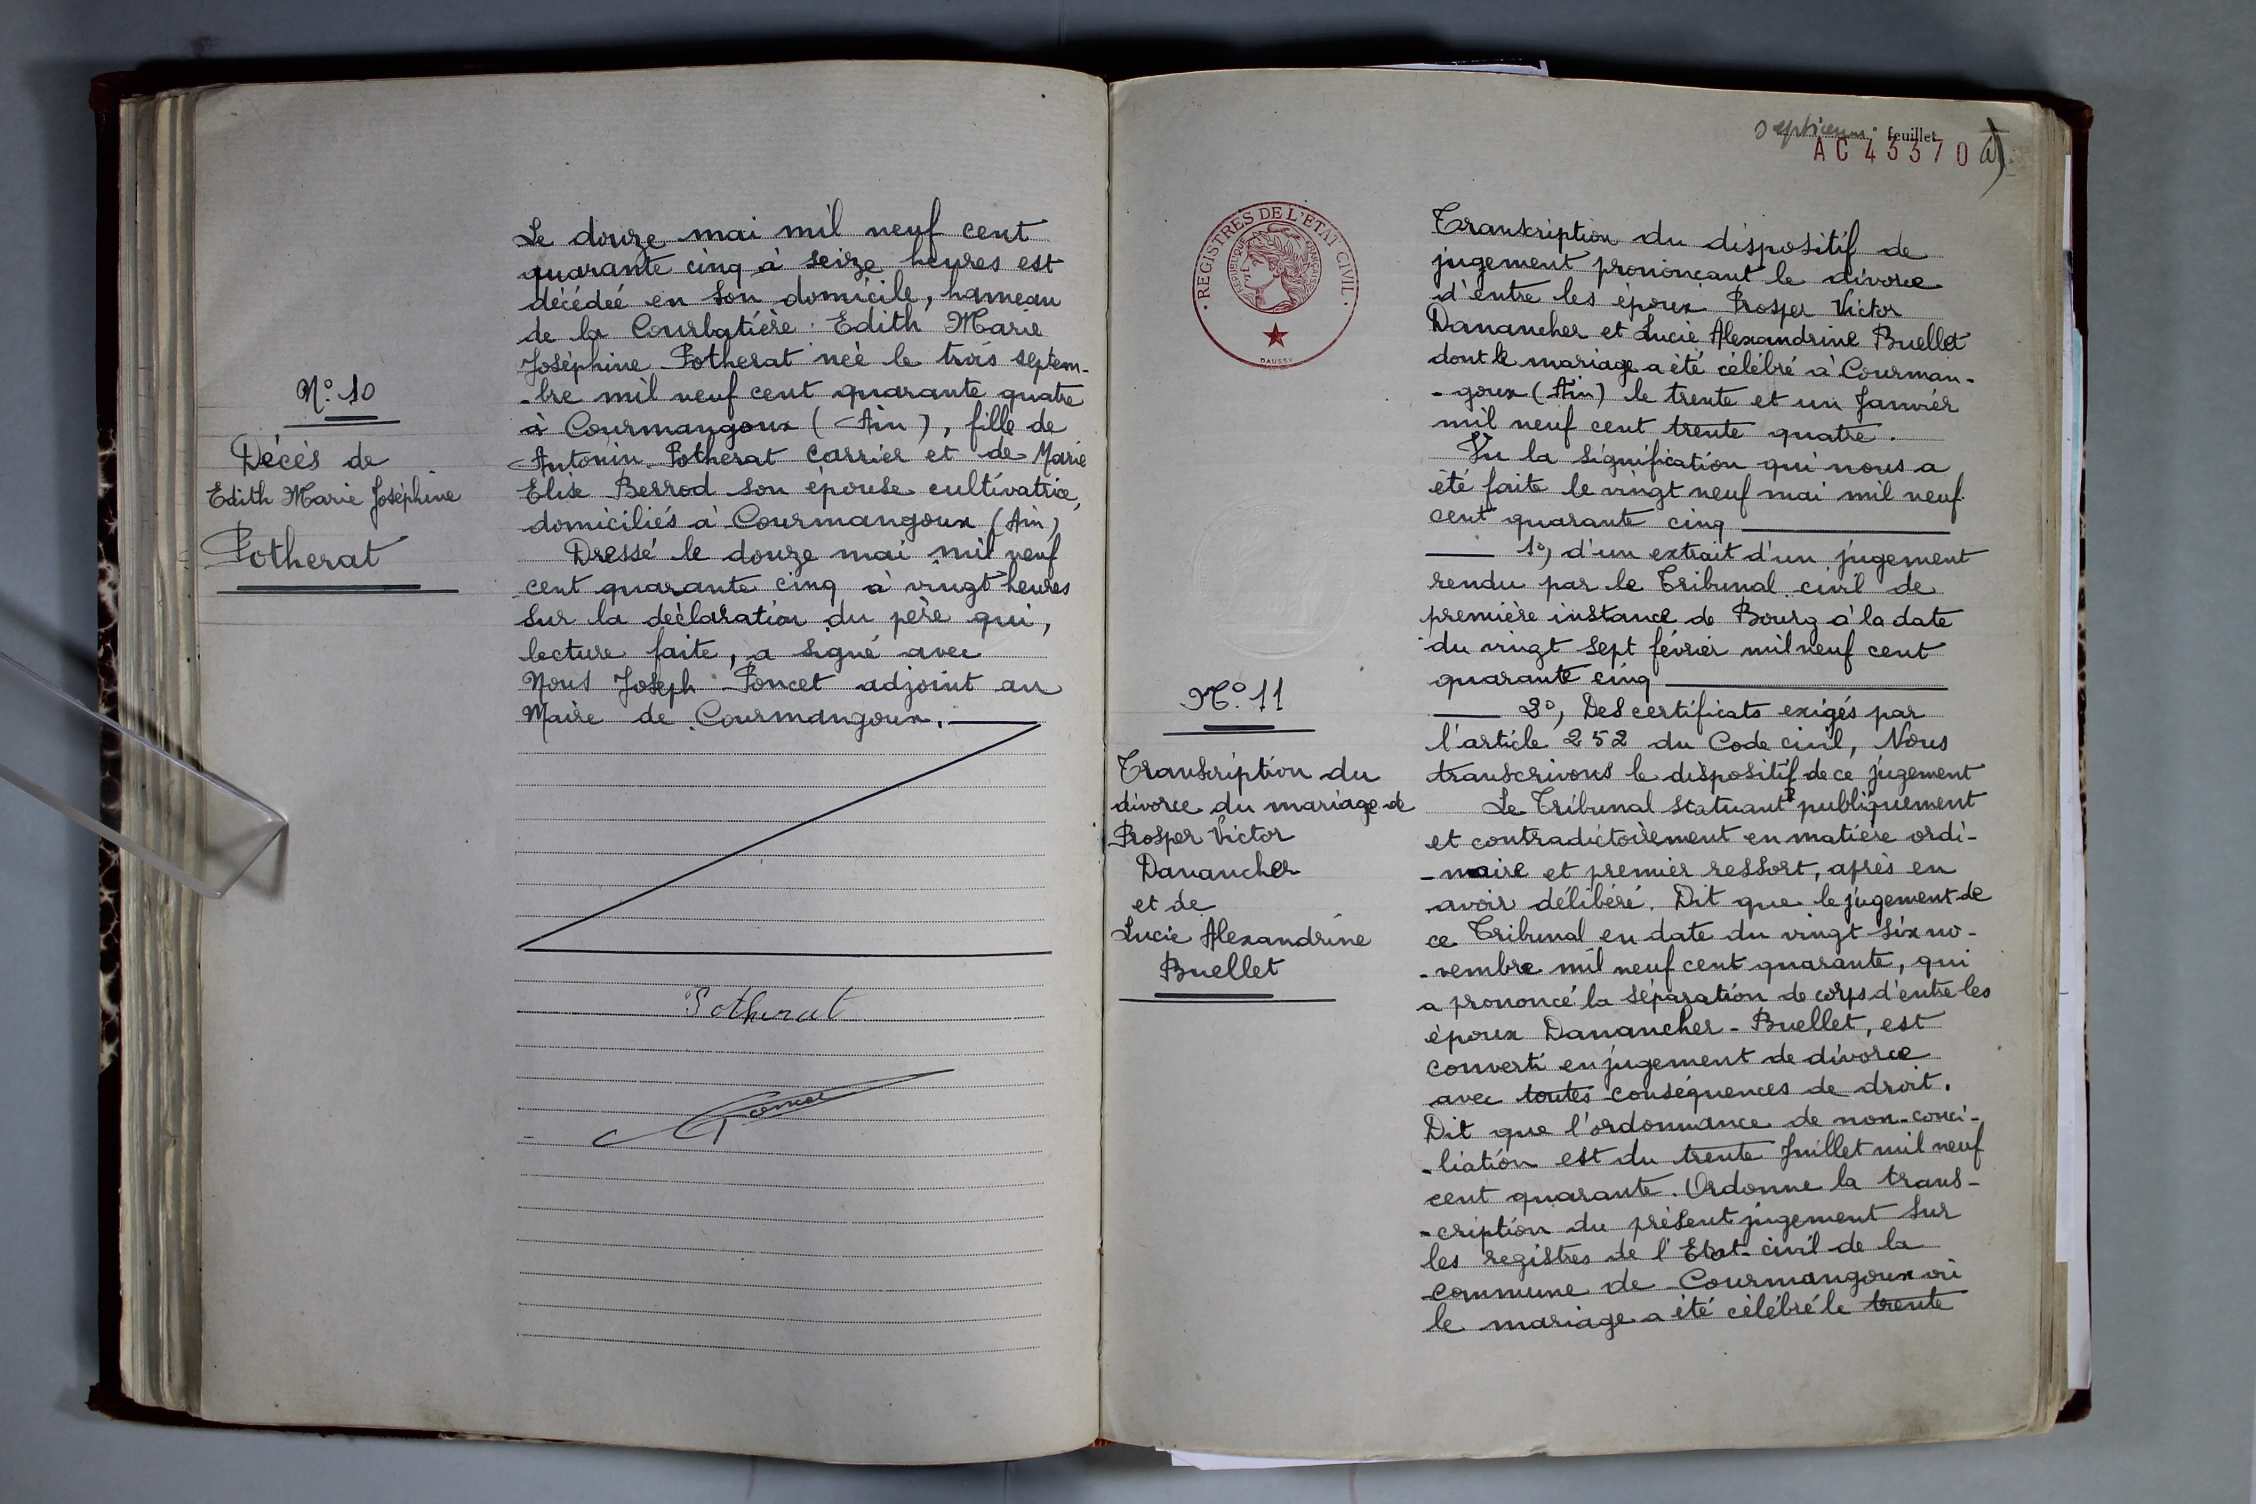 N° 10
Décès de
Edith Marie Joséphine
Potherat
Le douze mai mil neuf cent
quarante cinq à seize heures est
décédée en son domicile, hameau
de la Courbatière Edith Marie
Joséphine Potherat née le trois septem-
-bre mil neuf cent quarante quatre
à Courmangoux (Ain), fille de
Antonin Potherat carrier et de Marie
Elise Berrod son épouse cultivatrice,
domiciliés à Courmangoux (Ain)
Dressé le douze mai mil neuf
cent quarante cinq à vingt heures
sur la déclaration du père qui,
lecture faite, a signé avec
Nous Joseph Poncet adjoint au
Maire de Courmangoux.
Potherat
Poncet
feuillet
AC 43370
REGISTRES DE L'ETAT CIVIL
REPUBLIQUE FRANÇAISE
N° 11
Transcription du
divorce du mariage de
Prosper Victor
Danancher
et de
Lucie Alexandrine
Buellet
Transcription du dispositif de
jugement prononçant le divorce
d'entre les époux Prosper Victor
Danancher et Lucie Alexandrine Buellet
dont le mariage a été célébré à Courman-
-goux (Ain) le trente et un Janvier
mil neuf cent trente quatre.
Vu la signification qui nous a
été faite le vingt neuf mai mil neuf
cent quarante cinq
1°, d'un extrait d'un jugement
rendu par le Tribunal civil de
première instance de Bourg à la date
du vingt sept février mil neuf cent
quarante cinq
2°, Des certificats exigés par
l'article 252 du Code civil, Nous
transcrivons le dispositif de ce jugement
Le Tribunal statuant publiquement
et contradictoirement en matière ordi-
-naire et premier ressort, après en
avoir délibéré. Dit que le jugement de
ce Tribunal en date du vingt six no-
-vembre mil neuf cent quarante, qui
a prononcé la séparation de corps d'entre les
époux Danancher - Buellet, est
converti en jugement de divorce
avec toutes conséquences de droit.
Dit que l'ordonnance de non-conci-
-liation est du trente Juillet mil neuf
cent quarante. Ordonne la trans-
-cription du présent jugement sur
les registres de l'Etat-civil de la
commune de Courmangoux où
le mariage a été célébré le trente